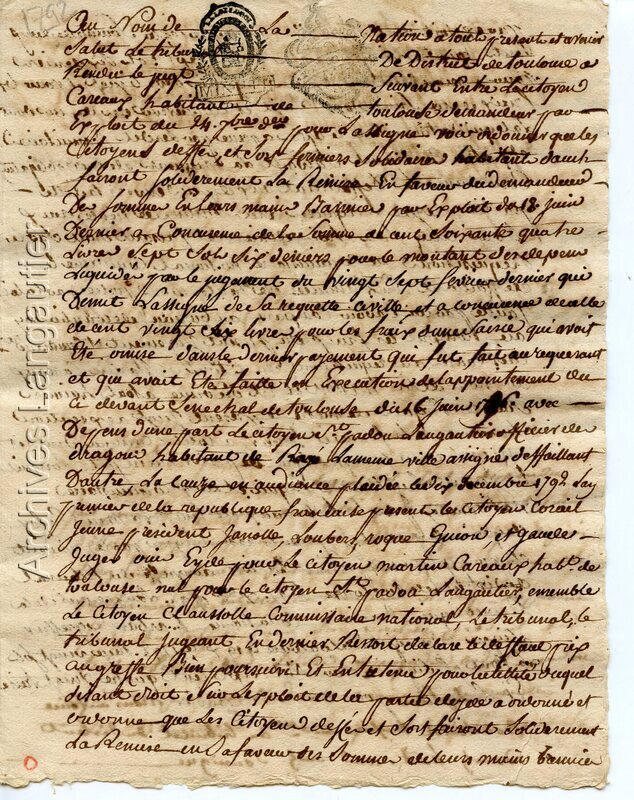 1792
Au Nom de La Nation a tout present et avenir
Salut Le tribunal De District de toulouse a
Rendu le jugt Suivant Entre Le citoyen
Careaux habitant de toulouse demandeur par
Exploit du 24 pour Lassigné voir ordonner que les
Citoyens et Sort fermiers Solidaires habitant
fairont soliderement La Remise En faveur du demandeur
De somme En leurs mains Bannies par Exploit du 18 juin
Dernier a Concurence de la Somme de cent Soixante quatre
Livres Sept Sols Six deniers pour le montant des depens
Liquides par le jugement du vingt Sept fevrier dernier qui
Demet Lassigné de Sa requette Civille et a concurence de celle
de cent vingt livres pour les fraix d'une Saisie qui avoit
Eté omise dans le dernier payement qui fut fait au requerant
et qui avait Eté faitte en Execution de lappointement du
ci devant Senechal de toulouse du 6 juin avec
Depens d'une part Le citoyen St padou Laugautier officier de
dragons habitant de La meme ville assigné deffaillant
Dautre La cauze en audiance plaidée le dix decembre 1792 Lan
premier de la republique francaise present les Citoyens corail
jeune president Janolle, Loubers, roque Guion, et Gaude
Juges oui Eyde pour Le citoyen martin Careaux habt de
toulouse nul pour le citoyen St padou Laugautier, ensemble
Le Citoyen Claussolle Commissaire national, Le tribunal, le
tribunal Jugeant En dernier Ressort declare le deffaut pris
au greffe Bien poursuivi Et Entretenu pour lutilité duquel
disant droit Sur Lexploit de la partie deyde a ordonné et
ordonne que Les Citoyens et Sort fairont Soliderement
La Remise en Sa faveur des Sommes de leurs mains bannies
Archives Langautier